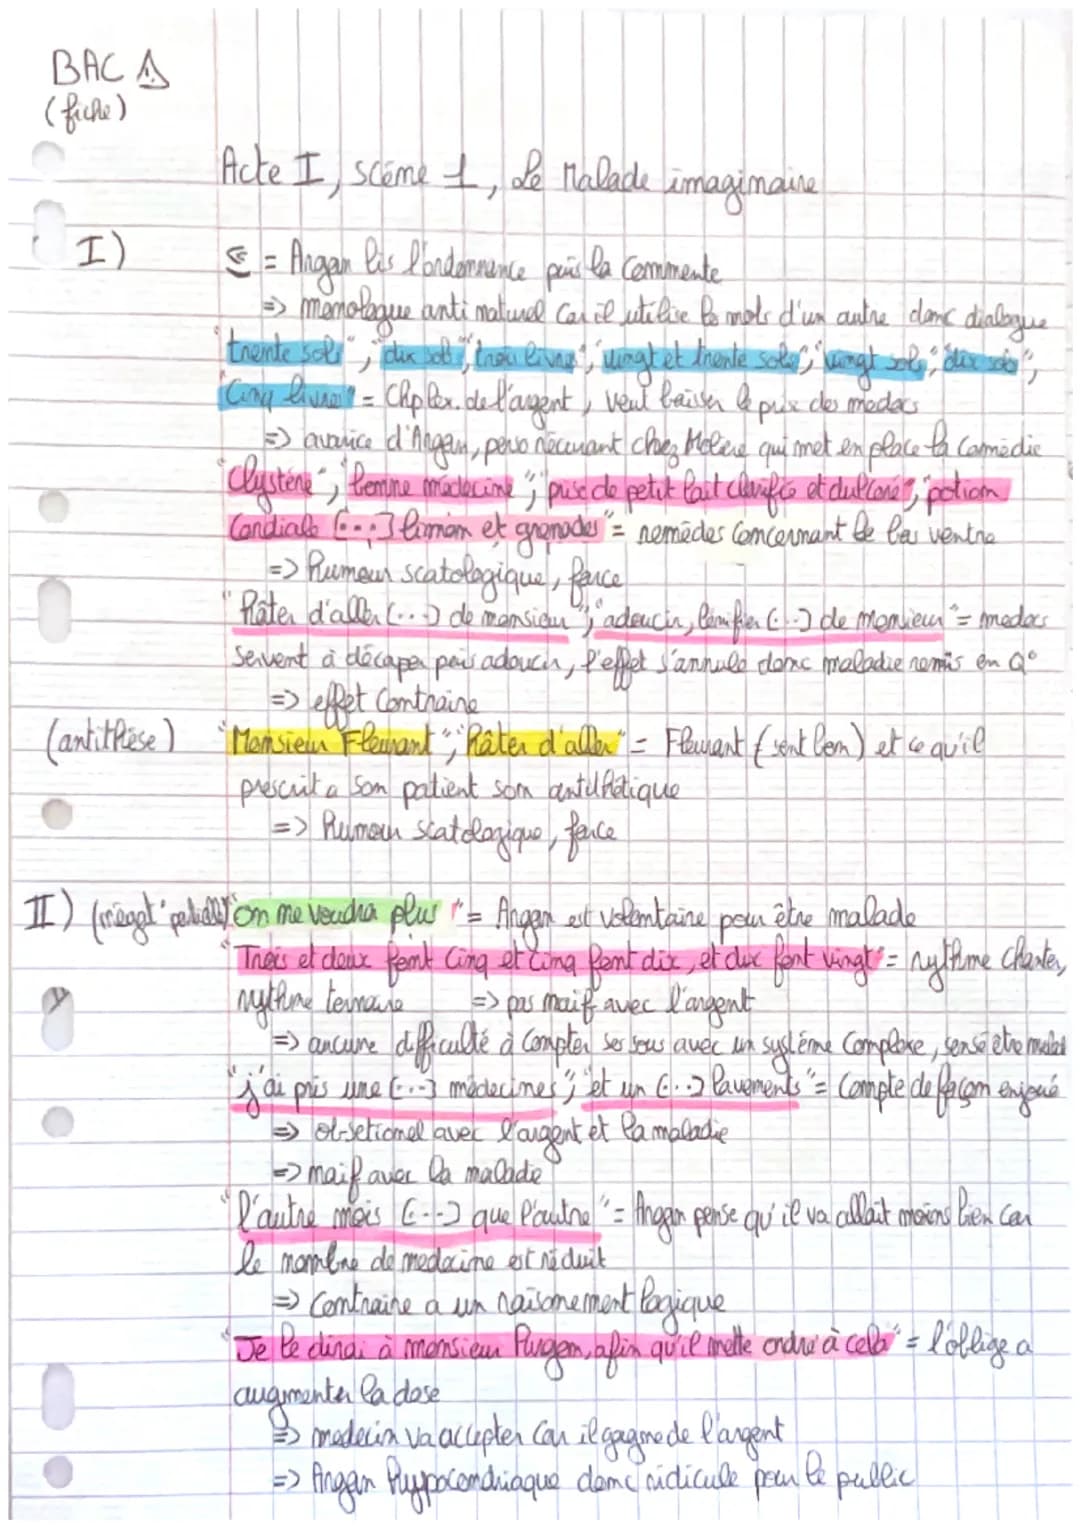 BAC ⚠
(fiche)
Acte I, scéme 1, Le Malade imaginaire
I)
= Argan lis l'ordonnance puis la commente
=> monologue anti naturel car il utilise le mots d'un autre donc dialogue
"trente sols", "dix sols", "trois livres", "vingt et trente sols", "vingt sols", "dix sols",
"Cinq livres" = Chp lex. de l'argent, veut baisser le prix des medocs
=> avarice d'Argan, perso récurant chez Molière qui met en place la comédie
"Clystère", "bonne médecine", "prise de petit lait clarifié et dulcoré", "potion
Cordiale [...] limon et grenades" = remèdes concernant le bas ventre
=> humour scatologique, farce
"Hâter d'aller (...) de monsieur", "adoucir, lénifier (...) de monsieur" = medocs
servent à décaper puis adoucir, l'effet s'annule donc maladie remis en Q°
=> effet contraire
(antithèse) "Monsieur Fleurant", "Hâter d'aller" = Fleurant (sent bon) et ce qu'il
prescrit a son patient son antithétique
=> humour scatologique, farce
II) (négat° partielle) "on me voudra plus" = Argan est volontaire pour être malade
"Trois et deux font Cinq et Cinq font dix, et dix font vingt" = rythme chanter,
rythme ternaire => pas naif avec l'argent
=> aucune difficulté à compter ses sous avec un système complexe, sensé être malad
"j'ai pris une [...] médecines", "et un (...) lavements" = Compte de façon enjoué
=> obsetionel avec l'argent et la maladie
=> naif avec la maladie
"l'autre mois (...) que l'autre" = Argan pense qu'il va allait moins bien car
le nombre de medecine est réduit
=> Contraire a un raisonement logique
"Je le dirai à monsieur Purgon, afin qu'il mette ordre à cela" = l'oblige a
augmenter la dose
=> medecin va accepter car il gagne de l'argent
=> Argan hypocondriaque donc ridicule pour le public